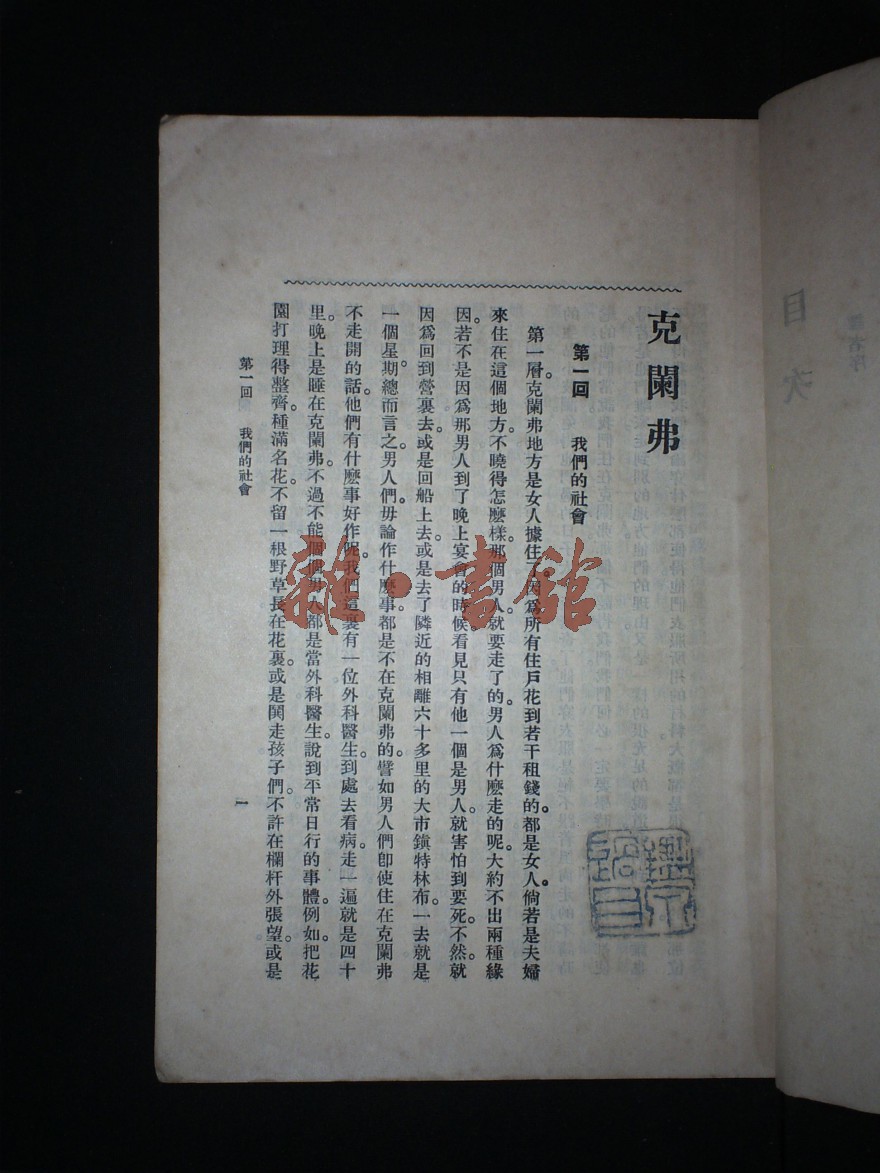 克闌弗
第一回　我們的社會
第一層克闌弗地方是女人據住了因爲所有住戶花到若干租錢的。都是女人。倘若是夫婦
來住在這個地方。不曉得怎麼樣。那個男人。就要走了的。男人爲什麼走的呢。大約不出兩種緣
因。若不是因爲那男人到了晚上宴會的時候。看見只有他一個是男人。就害怕到要死。不然。就
因爲回到營裏去。或是回船上去。或是去了隣近的相離六十多里的大市鎭特林布。一去就是
一個星期。總而言之。男人們。毋論作什麼事。都是不在克闌弗的。譬如男人們卽使住在克闌弗
不走開的話。他們有什麼事好作呢。我們這裏有一位外科醫生。到處去看病。走一遍就是四十
里。晚上是睡在克闌弗。不過不能個個男人都是當外科醫生。說到平常日行的事體。例如。把花
園打理得整齊。種滿名花。不留一根野草長在花裏。或是関走孩子們。不許在欄杆外張望。或是
第一回　我們的社會
一
目次
譯者序
雜·書館